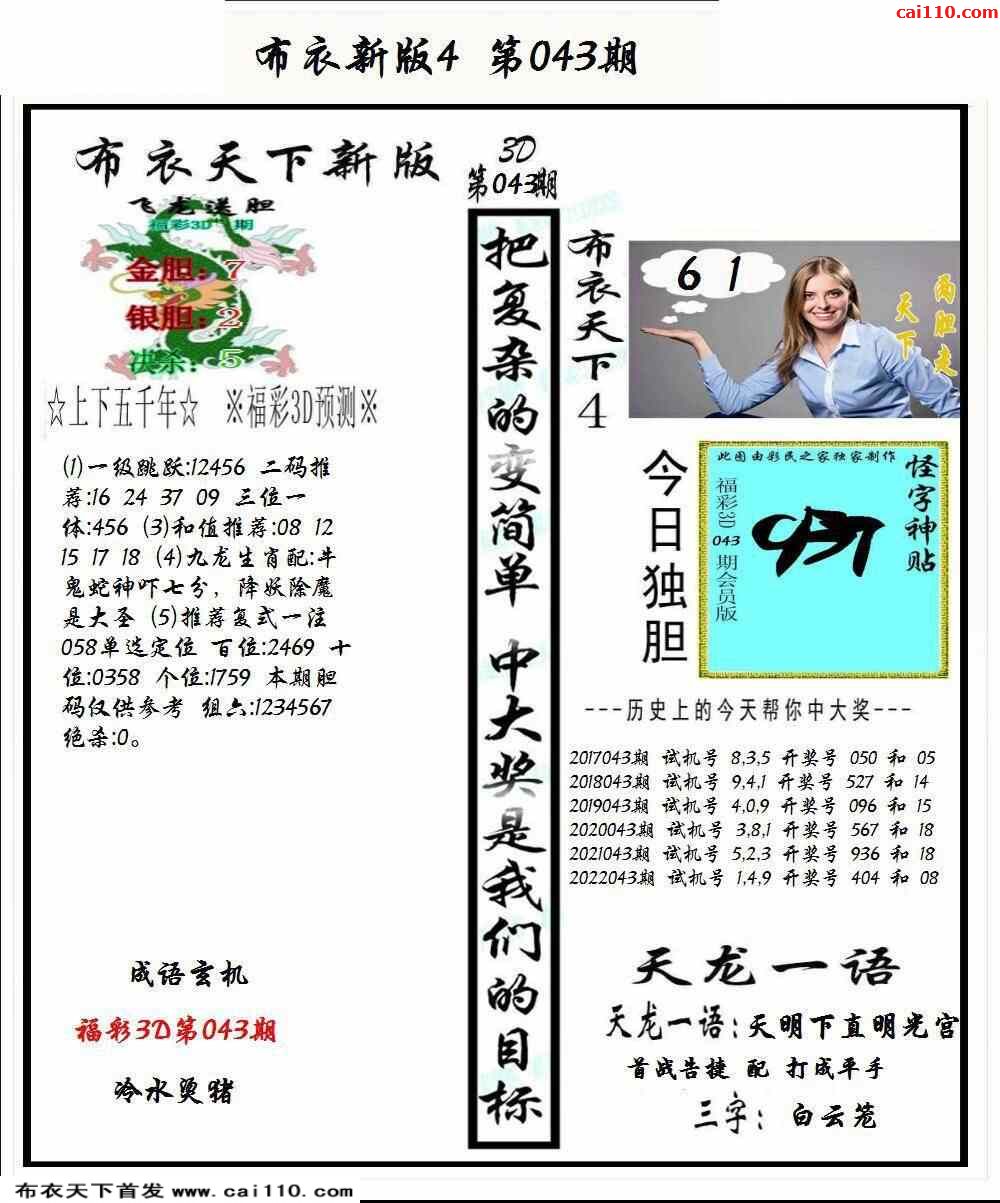 cai110.com
布衣新版4 第043期
布衣天下新版
飞龙送胆
福彩3D 期
金胆：7
银胆：2
决杀：5
☆上下五千年☆ ※福彩3D预测※
(1)一级跳跃:12456 二码推
荐:16 24 37 09 三位一
体:456 (3)和值推荐:08 12
15 17 18 (4)九龙生肖配:牛
鬼蛇神吓七分，降妖除魔
是大圣 (5)推荐复式一注
058单选定位 百位:2469 十
位:0358 个位:1759 本期胆
码仅供参考 组六:1234567
绝杀:0。
成语玄机
福彩3D第043期
冷水烫猪
3D
第043期
把复杂的变简单 中大奖是我们的目标
布衣天下4
6 1
两胆走
天下
今日独胆
此图由彩民之家独家制作
怪字神贴
福彩3D 043 期会员版
937
---历史上的今天帮你中大奖---
2017043期 试机号 8,3,5 开奖号 050 和 05
2018043期 试机号 9,4,1 开奖号 527 和 14
2019043期 试机号 4,0,9 开奖号 096 和 15
2020043期 试机号 3,8,1 开奖号 567 和 18
2021043期 试机号 5,2,3 开奖号 936 和 18
2022043期 试机号 1,4,9 开奖号 404 和 08
天龙一语
天龙一语：天明下直明光宫
首战告捷 配 打成平手
三字： 白云笼
布衣天下首发 www.cai110.com